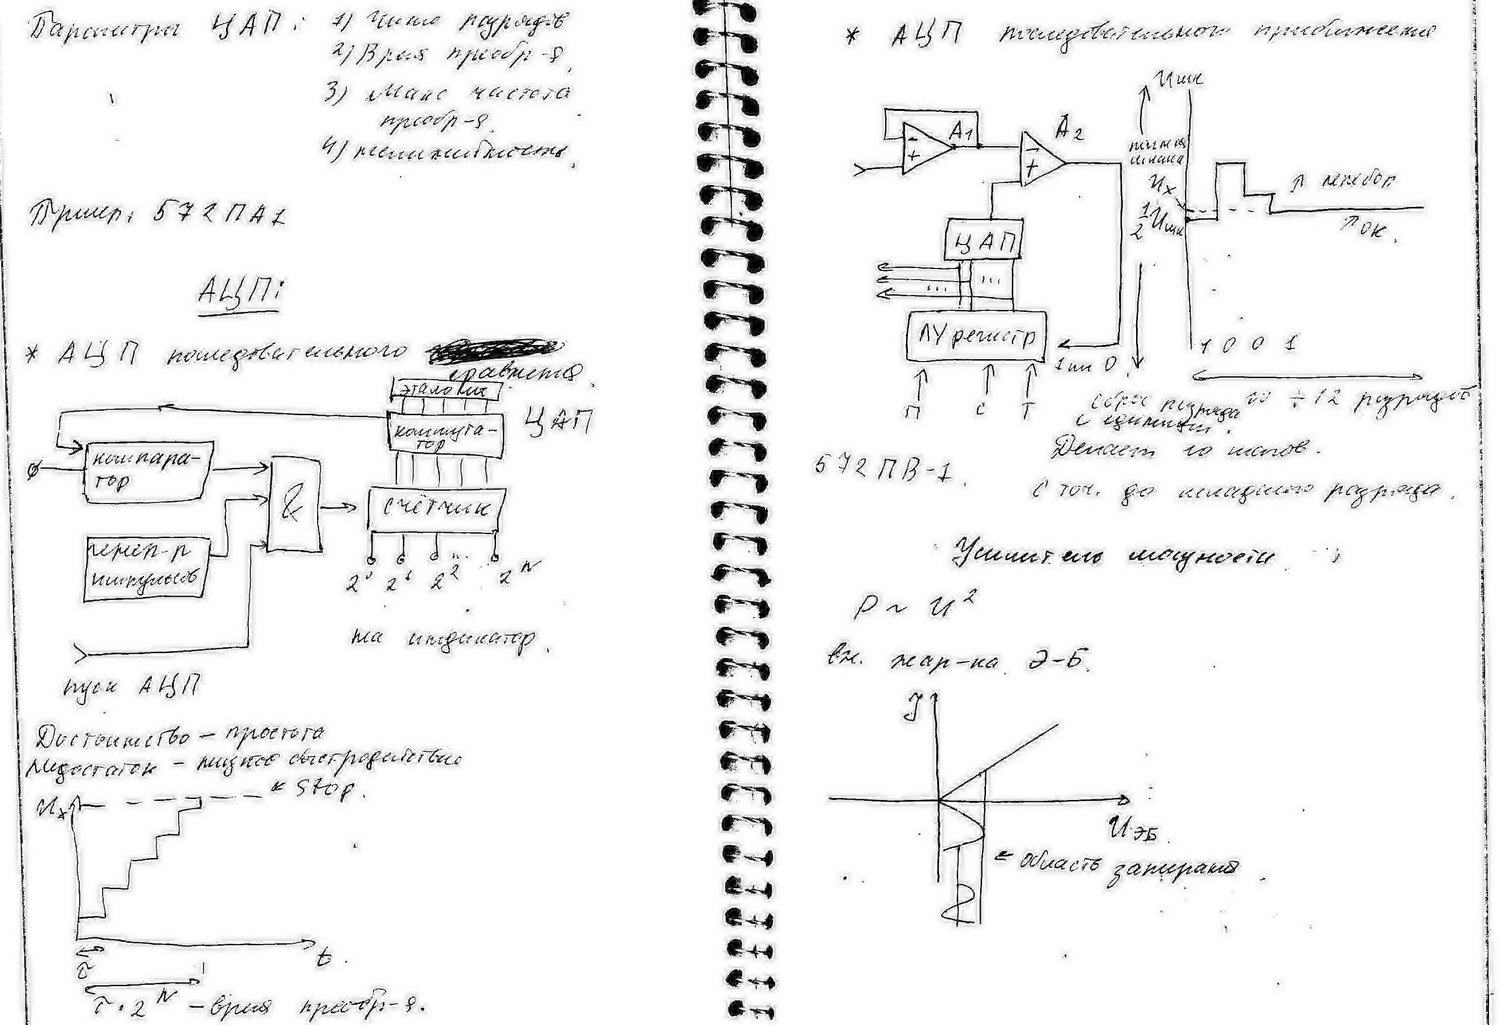 Параметры ЦАП: 1) Число разрядов
2) Время преобр-я.
3) Макс частота
преобр-я.
4) нелинейность.
Пример: 572ПА1
АЦП:
* АЦП последовательного
сравнения.
эталоны
коммута-
тор
ЦАП
компара-
тор
&
счётчик
генер-р
импульсов
2⁰ 2¹ 2² ... 2ᴺ
на индикатор.
пуск АЦП
Достоинство – простота
Недостаток – низкое быстродействие
Uх
← Stop.
τ
t.
τ·2ᴺ – время преобр-я.
* АЦП последовательного приближения
A1
A2
ЦАП
...
...
ЛУ регистр
1 или 0
П С Т
Uшк
полная
шкала
Uх
1/2 Uшк
↑ перебор
↑ ок.
1 0 0 1
10 ÷ 12 разрядов
сброс разряда
с единицы.
Делает 10 шагов.
572ПВ-1.
с точ. до младшего разряда.
Усилитель мощности
P ~ U²
вх. хар-ка Э-Б.
J
Uэб
← область запирания